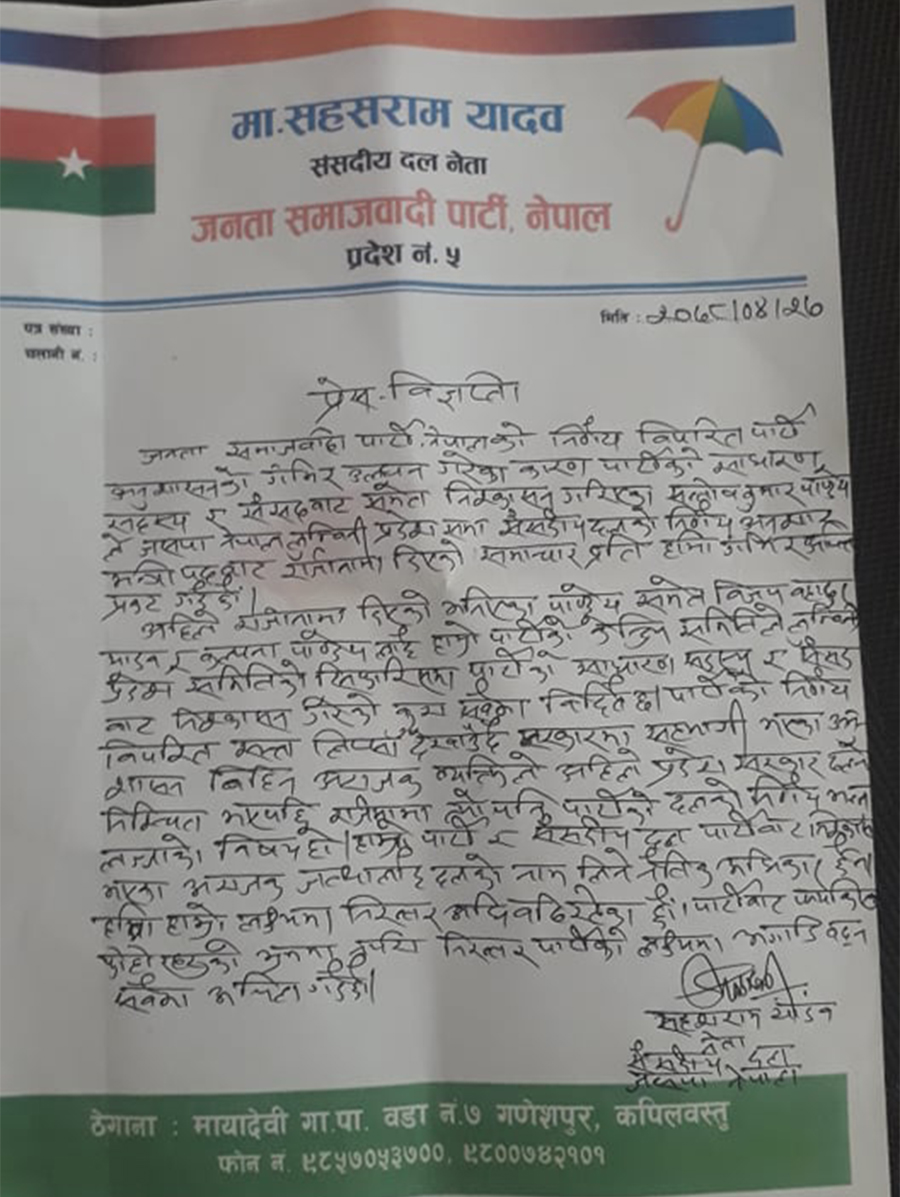 मा.सहसराम यादव
संसदीय दल नेता
जनता समाजवादी पार्टी, नेपाल
प्रदेश नं. ५
मिति : २०७८/०४/२७
पत्र संख्या :
चलानी नं. :
प्रेस-विज्ञप्ति
जनता समाजवादी पार्टी, नेपालको निर्णय विपरित पार्टी
अनुशासनको गंभिर उल्लघन गरेका कारण पार्टीको साधारण
सदस्य र संसदबाट समेत निस्कासन गरिएका सन्तोष कुमार पाण्डेय
ले जसपा नेपाल लुम्बिनी प्रदेश सभा संसदीय दलको निर्णय अनुसार
मन्त्री पदबाट राजीनामा दिएको समाचार प्रति हामी गंभिर आपत्ति
प्रकट गर्दछौं।
अहिले राजीनामा दिएको भनिएका पाण्डेय समेत विजय बहादुर
यादव र कल्पना पाण्डेय लाई हाम्रो पार्टीको केन्द्रिय समितिले लुम्बिनी
प्रदेश समितिको सिफारिसमा पार्टीको साधारण सदस्य र संसद
बाट निस्कासन गरेको कुरा सबैमा विदितै छ। पार्टीको निर्णय
विपरित सत्ता लिप्सा देखाउँदै सरकारमा सहभागी भएका अनु
शासन बिहिन अराजक व्यक्तिले अहिले प्रदेश सरकार ढल्ने
निश्चित भएपछि पार्टीको दलको निर्णय भन्नु
लज्जाको विषय हो। हाम्रो पार्टी र संसदीय दल पार्टीबाट
भएका अराजक जत्थालाई दलको नाम लिने नैतिक अधिकार छैन।
हामी हाम्रो लक्ष्यमा निरन्तर अघि बढिरहेका छौं। पार्टीबाट
निरन्तर पार्टीको लक्ष्यमा अगाडि बढ्न
सबैमा अपिल गर्दछौं।
सहसराम यादव
नेता
संसदीय दल
जसपा नेपाल
ठेगाना : मायादेवी गा.पा. वडा नं.७ गणेशपुर, कपिलवस्तु
फोन नं. ९८५७०५३७००, ९८००७४२१०१